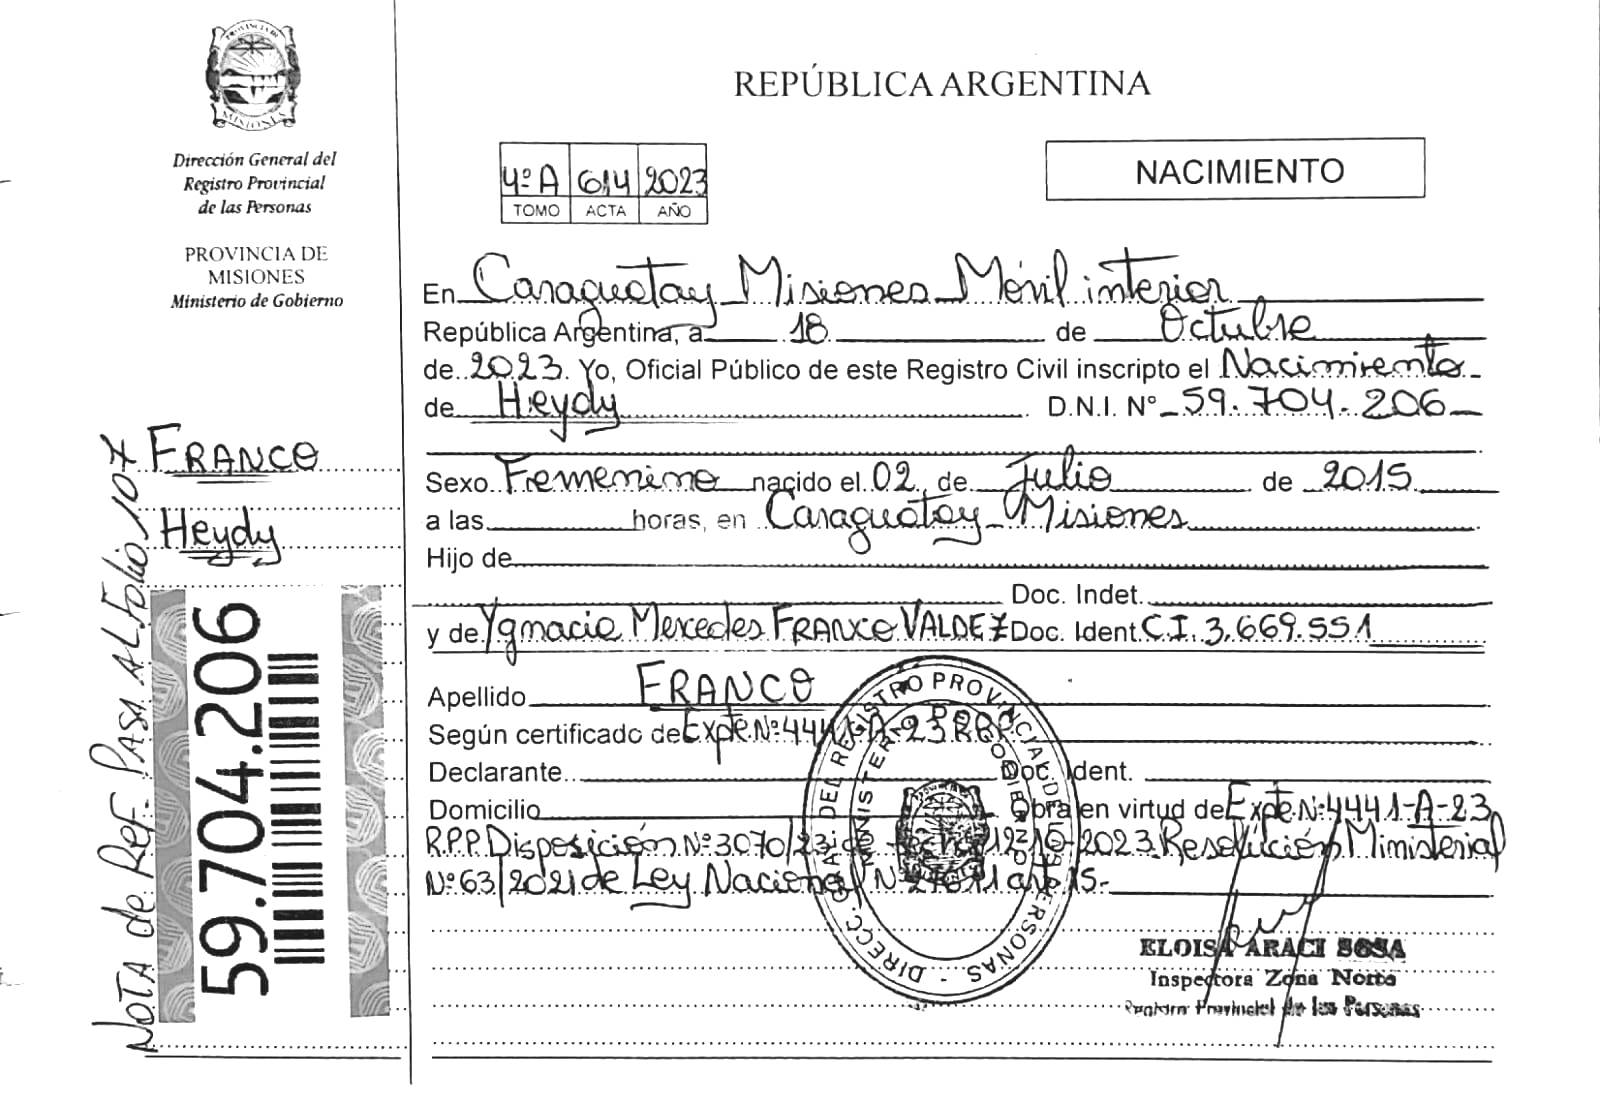 PROVINCIA DE
MISIONES
Dirección General del
Registro Provincial
de las Personas
PROVINCIA DE
MISIONES
Ministerio de Gobierno
FRANCO
Heydy
59.704.206
NOTA de REF. PASA AL Folio 107
REPÚBLICA ARGENTINA
4º A 614 2023
TOMO ACTA AÑO
NACIMIENTO
En Caraguatay Misiones Móvil interior
República Argentina, a 18 de Octubre
de 2023. Yo, Oficial Público de este Registro Civil inscripto el Nacimiento
de Heydy D.N.I. Nº 59.704.206
Sexo Femenino nacido el 02 de Julio de 2015
a las horas, en Caraguatay Misiones
Hijo de
Doc. Indet.
y de Ygnacia Mercedes FRANCO VALDEZ Doc. Ident. C.I. 3.669.551
Apellido FRANCO
Según certificado de Expte Nº 4441-A-23 RPP
Declarante Doc. Ident.
Domicilio Obra en virtud de Expte Nº 4441-A-23
R.P.P. Disposición Nº 3070/23 de fecha 12-10-2023. Resolución Ministerial
Nº 63/2021 de Ley Nacional Nº 27611 art 15.-
DIRECC. GRAL. DEL REGISTRO PROVINCIAL DE LAS PERSONAS -
MINISTERIO DE GOBIERNO
ELOISA ARACI SOSA
Inspectora Zona Norte
Registro Provincial de las Personas